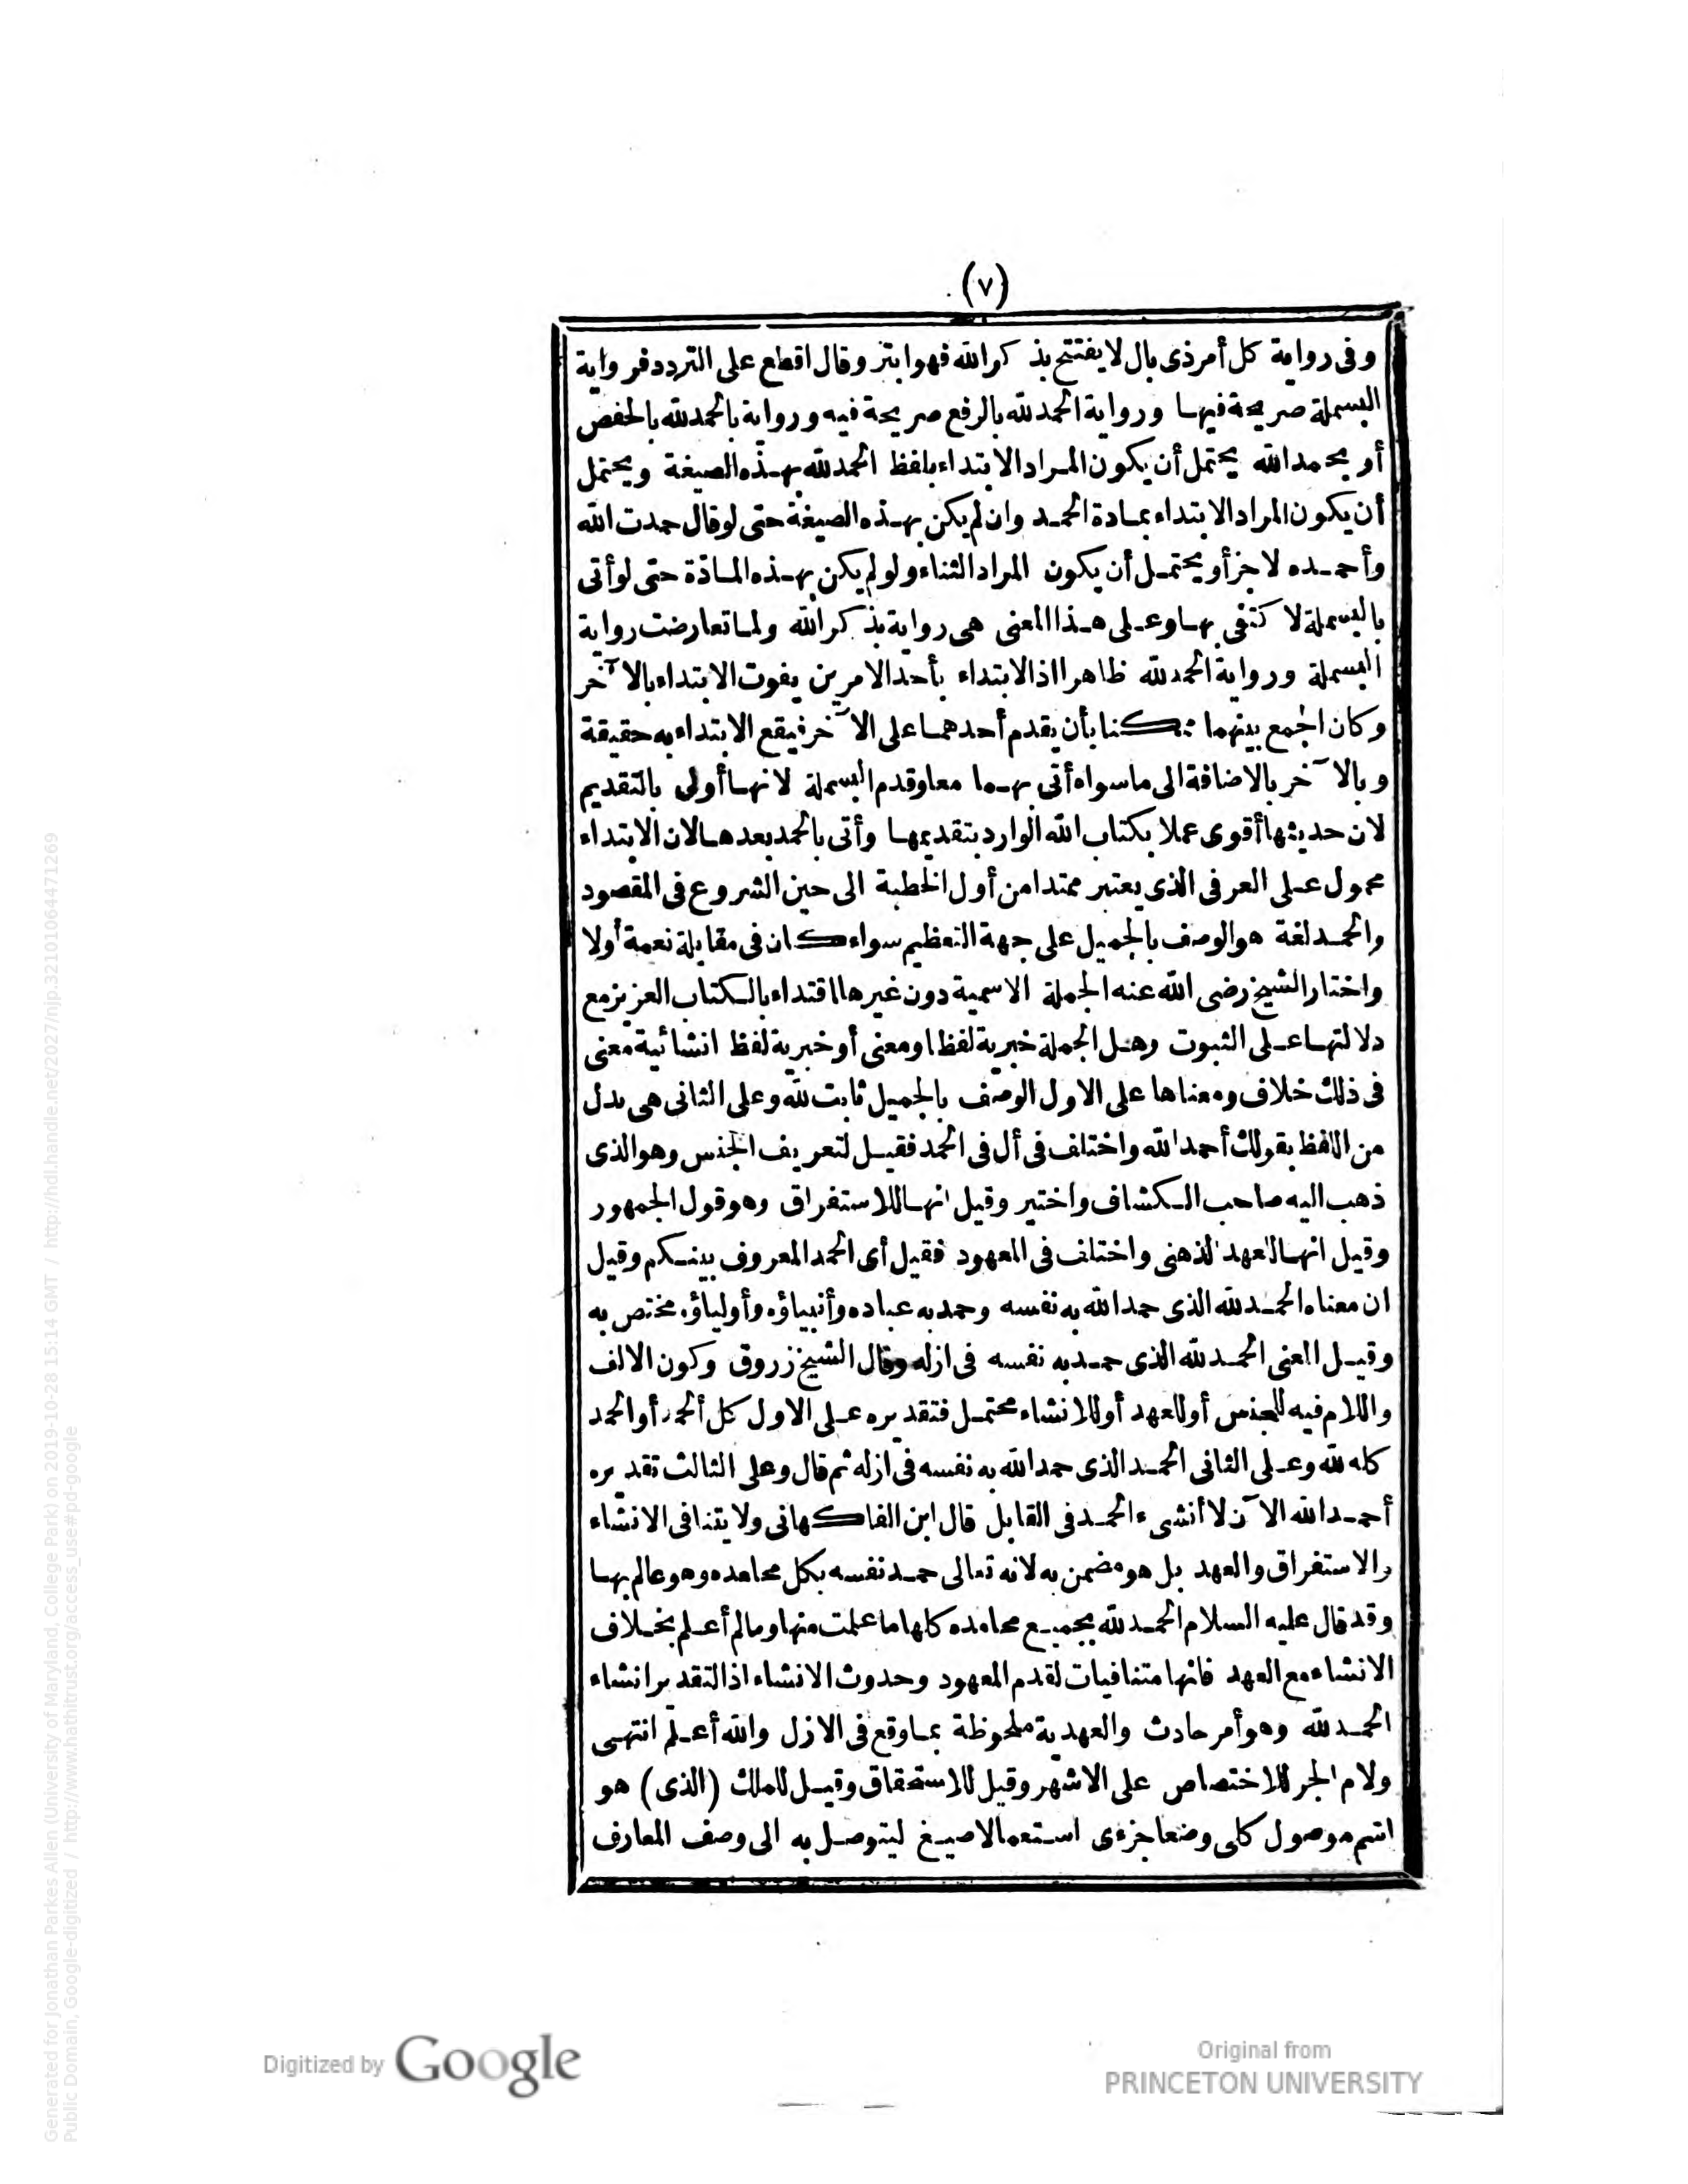 (٧)
وفى رواية كل أمر ذى بال لا يفتتح بذكر الله فهو ابتر وقال اقطع على التردد فرواية
البسملة صريحة فيها ورواية الحمد لله بالرفع صريحة فيه ورواية بالحمد لله بالخفض
أو بحمد الله يحتمل أن يكون المراد الابتداء بلفظ الحمد لله بهذه الصيغة ويحتمل
أن يكون المراد الابتداء بمادة الحمد وان لم يكن بهذه الصيغة حتى لو قال حمدت الله
وأحمده لاجزأ ويحتمل أن يكون المراد الثناء ولو لم يكن بهذه المادّة حتى لو أتى
بالبسملة لاكتفى بها وعلى هذا المعنى هى رواية بذكر الله ولما تعارضت رواية
البسملة ورواية الحمد لله ظاهرا اذ الابتداء بأحد الامرين يفوت الابتداء بالآخر
وكان الجمع بينهما ممكنا بأن يقدم أحدهما على الآخر فيقع الابتداء به حقيقة
وبالآخر بالاضافة الى ما سواه أتى بهما معا وقدم البسملة لانها أولى بالتقديم
لان حديثها أقوى عملا بكتاب الله الوارد بتقديمها وأتى بالحمد بعدها لان الابتداء
محمول على العرفى الذى يعتبر ممتدا من أول الخطبة الى حين الشروع فى المقصود
والحمد لغة هو الوصف بالجميل على جهة التعظيم سواء كان فى مقابلة نعمة أولا
واختار الشيخ رضى الله عنه الجملة الاسمية دون غيرها اقتداء بالكتاب العزيز مع
دلالتها على الثبوت وهل الجملة خبرية لفظا ومعنى أو خبرية لفظا انشائية معنى
فى ذلك خلاف ومعناها على الاول الوصف بالجميل ثابت لله وعلى الثانى هى بدل
من اللفظ بقولك أحمد الله واختلف فى أل فى الحمد فقيل لتعريف الجنس وهو الذى
ذهب اليه صاحب الكشاف واختير وقيل انها للاستغراق وهو قول الجمهور
وقيل انها للعهد الذهنى واختلف فى المعهود فقيل أى الحمد المعروف بينكم وقيل
ان معناه الحمد لله الذى حمد الله به نفسه وحمد به عباده وأنبياؤه وأولياؤه مختص به
وقيل المعنى الحمد لله الذى حمد به نفسه فى ازله وقال الشيخ زروق وكون الالف
واللام فيه للجنس أو للعهد أو للانشاء محتمل فتقديره على الاول كل ألحمد أو الحمد
كله لله وعلى الثانى الحمد الذى حمد الله به نفسه فى ازله ثم قال وعلى الثالث تقديره
أحمد الله الآن لا أنشىء الحمد فى القابل قال ابن الفاكهانى ولا يتنافى الانشاء
والاستغراق والعهد بل هو مضمن به لانه تعالى حمد نفسه بكل محامده وهو عالم بها
وقد قال عليه السلام الحمد لله بجميع محامده كلها ما علمت منها وما لم أعلم بخلاف
الانشاء مع العهد فانها متنافيات لقدم المعهود وحدوث الانشاء اذ التقدير انشاء
الحمد لله وهو أمر حادث والعهدية ملحوظة بما وقع فى الازل والله أعلم انتهى
ولام الجر للاختصاص على الاشهر وقيل للاستحقاق وقيل للملك (الذى) هو
اسم موصول كلى وضعا جزءى استعمالا صيغ ليتوصل به الى وصف المعارف
Digitized by Google
Original from
PRINCETON UNIVERSITY
Generated for Jonathan Parkes Allen (University of Maryland, College Park) on 2019-10-28 15:14 GMT / http://hdl.handle.net/2027/njp.32101064471269
Public Domain, Google-digitized / http://www.hathitrust.org/access_use#pd-google